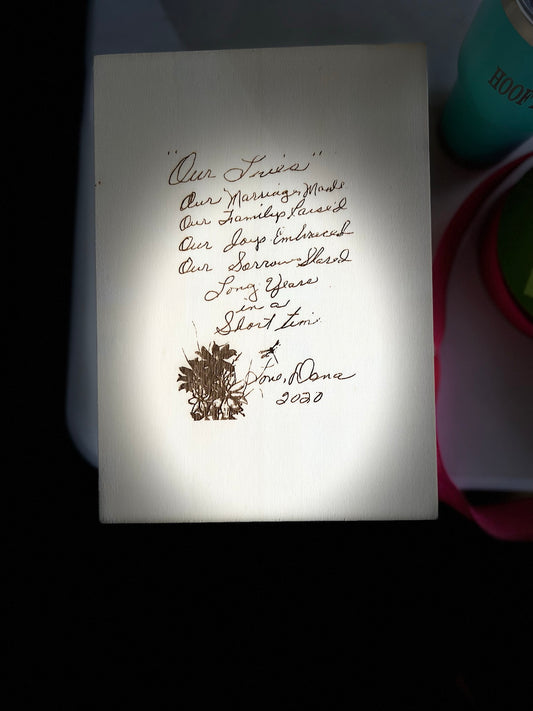 "Our Tries"
Our Marriages Made
Our Family Raised
Our Joys Embraced
Our Sorrows Shared
Long Years
in a
Short time
Love, Dana
2020
HOOF